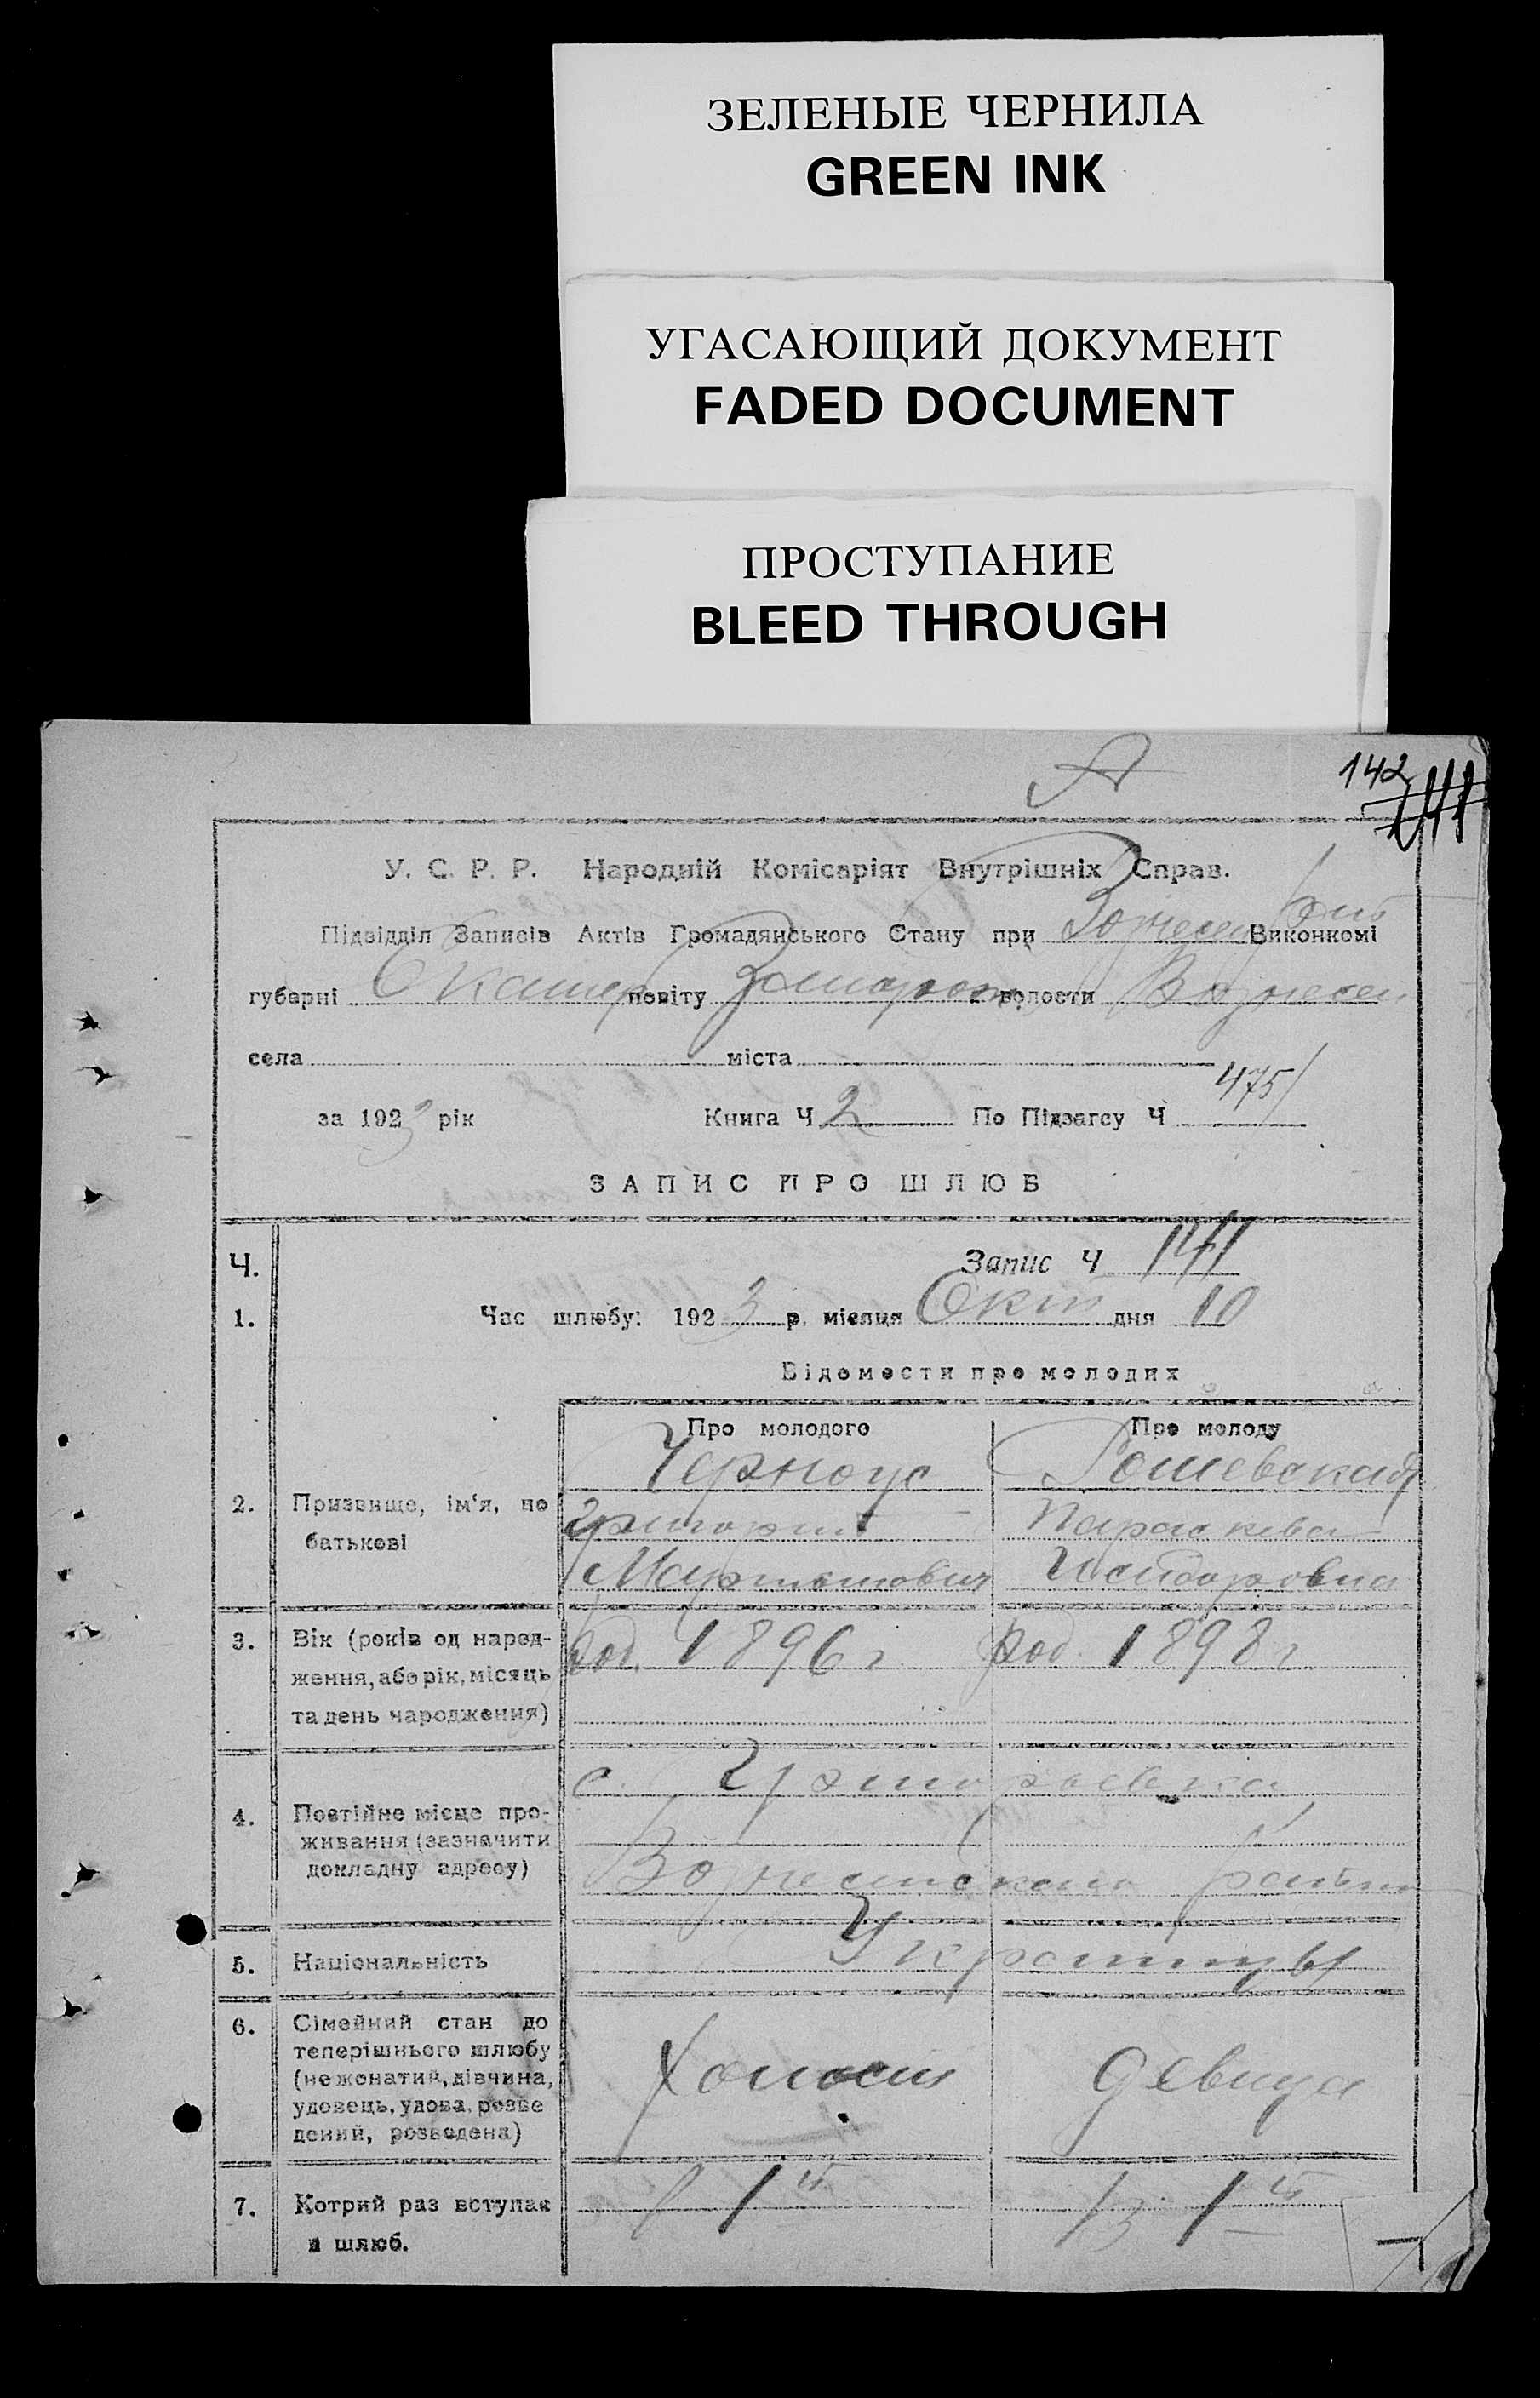 ЗЕЛЕНЫЕ ЧЕРНИЛА
GREEN INK
УГАСАЮЩИЙ ДОКУМЕНТ
FADED DOCUMENT
ПРОСТУПАНИЕ
BLEED THROUGH
142
У. С. Р. Р. Народній Комісаріят Внутрішніх Справ.
Підвідділ Записів Актів Громадянського Стану при Виконкомі
губерні Екатер повіту Запорож волости Вознесен
села міста
475
за 1923 рік Книга Ч 2 По Підзагсу Ч
ЗАПИС ПРО ШЛЮБ
Ч. Запис Ч 141
1. Час шлюбу: 1923 р. місяця Окт дня 10
Відомости про молодих
Про молодого Про молоду
Черноус
2. Призвище, ім'я, по Григорий Параскева
батькові Исидоровна
3. Вік (років од народ- род. 1896 г род. 1898 г
ження, або рік, місяць
та день народження)
с. Григорьевка
4. Постійне місце про-
живання (зазначити
докладну адресу) Вознесенского
5. Національність Украинцы
6. Сімейний стан до
теперішнього шлюбу
(не жонатий, дівчина, Холост девица
удовець, удова, розве
дений, розведена)
7. Котрий раз вступає 1й в 1й
в шлюб.